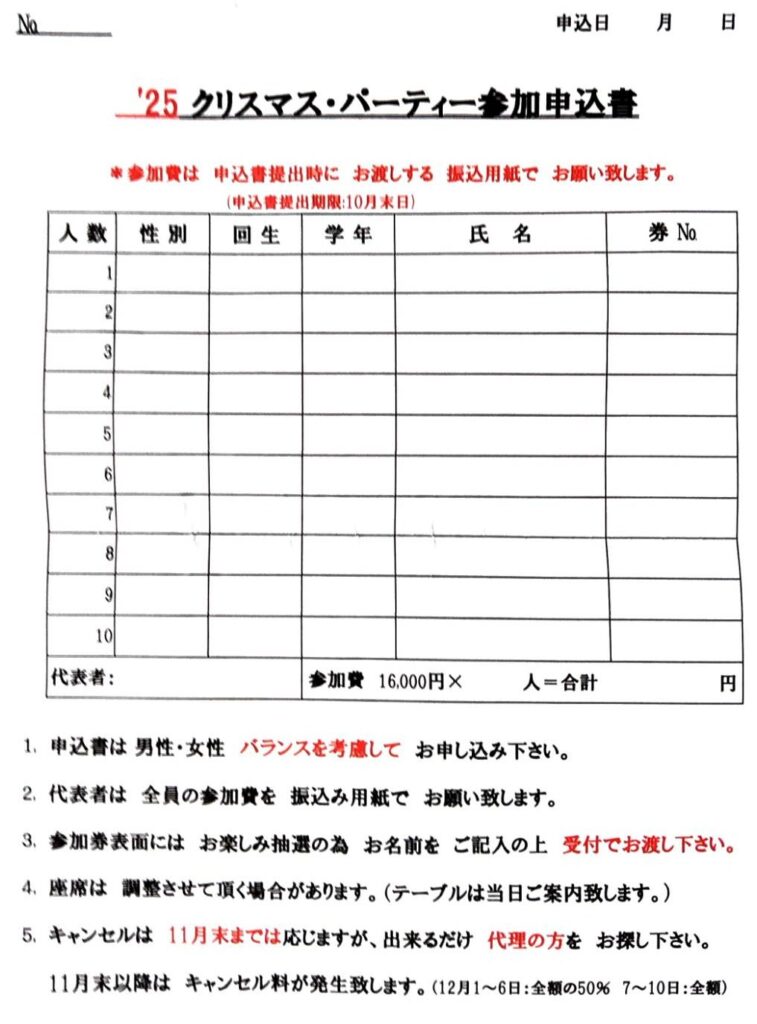 No. 申込日 月 日
'25 クリスマス・パーティー参加申込書
*参加費は 申込書提出時に お渡しする 振込用紙で お願い致します。
(申込書提出期限:10月末日)
人数 性別 回生 学年 氏 名 券 No.
1
2
3
4
5
6
7
8
9
10
代表者: 参加費 16,000円× 人=合計 円
1. 申込書は 男性・女性 バランスを考慮して お申し込み下さい。
2. 代表者は 全員の参加費を 振込み用紙で お願い致します。
3. 参加券表面には お楽しみ抽選の為 お名前を ご記入の上 受付でお渡し下さい。
4. 座席は 調整させて頂く場合があります。(テーブルは当日ご案内致します。)
5. キャンセルは 11月末までは応じますが、出来るだけ 代理の方を お探し下さい。
11月末以降は キャンセル料が発生致します。(12月1～6日:全額の50% 7～10日:全額)